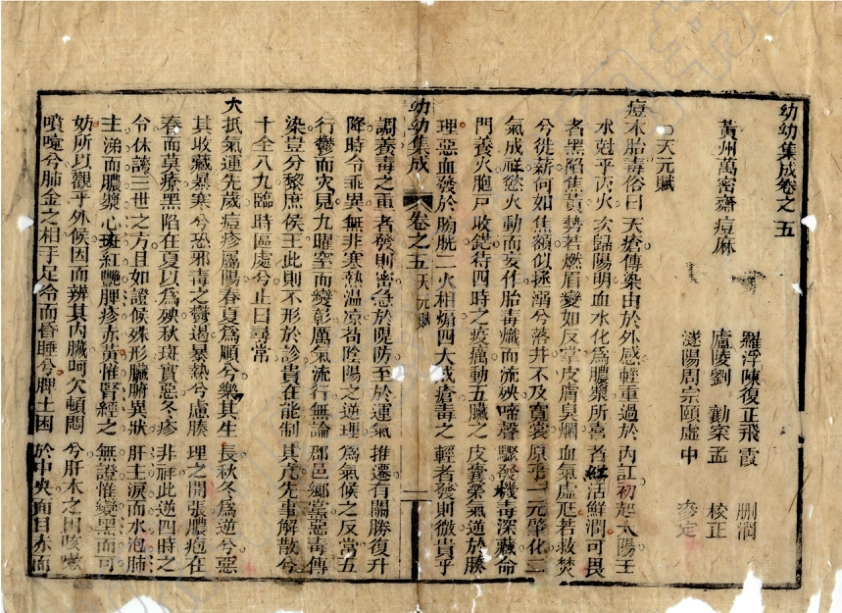 幼幼集成卷之五
羅浮陳復正飛霞 刪潤
廬陵劉 勷宋孟 校正
遂陽周宗頤虛中 叅定
黃州萬密齋痘麻
○天元賦
痘本胎毒俗曰天瘡傳染由於外感輕重過於內訌初起太陽壬
水尅乎丙火次歸陽明血水化爲膿漿所喜者紅活鮮潤可畏
者黑陷焦黃勢若燃眉變如反掌皮膚臭爛血氣虛尫若救焚
兮徙薪何如焦額似拯溺兮落井不及蹇裳原乎一元肇化二
氣成祥慾火動而妄作胎毒熾而流殃啼聲驟發機毒深藏命
門養火胞戸收鋩待四時之疫癘動五臟之皮囊榮氣逆於腠
理惡血發於膀胱二火相煽四大戒瘡毒之輕者發則微貴乎
幼幼集成 卷之五 天元賦 一
調養毒之重者發則密急於隄防至於運氣推遷有關勝復升
降時令乖異無非寒熱温凉苟陰陽之逆理爲氣候之反常五
行鬱而灾見九曜窒而變彰厲氣流行無論郡邑鄉黨惡毒傳
染豈分黎庶侯王此則不形於診貴在能制其亢先事解散兮
十全八九臨時區處兮止曰尋常
大抵氣運先歲痘疹屬陽春夏爲順兮樂其生長秋冬爲逆兮惡
其收藏暴寒兮恐邪毒之鬱遏暴熱兮慮腠理之開張膿疱在
春而莫療黑陷在夏以爲殃秋斑實惡冬疹非祥此逆四時之
令休誇三世之方且如證候殊形臟腑異狀肝主淚而水泡肺
主涕而膿漿心斑紅艷脾疹赤黃惟腎經之無證惟變黑而可
妨所以觀乎外候因而辨其內臟呵欠頓悶兮肝木之因咳嗽
噴嚏兮肺金之相手足冷而昏睡兮脾土困於中央面目赤而